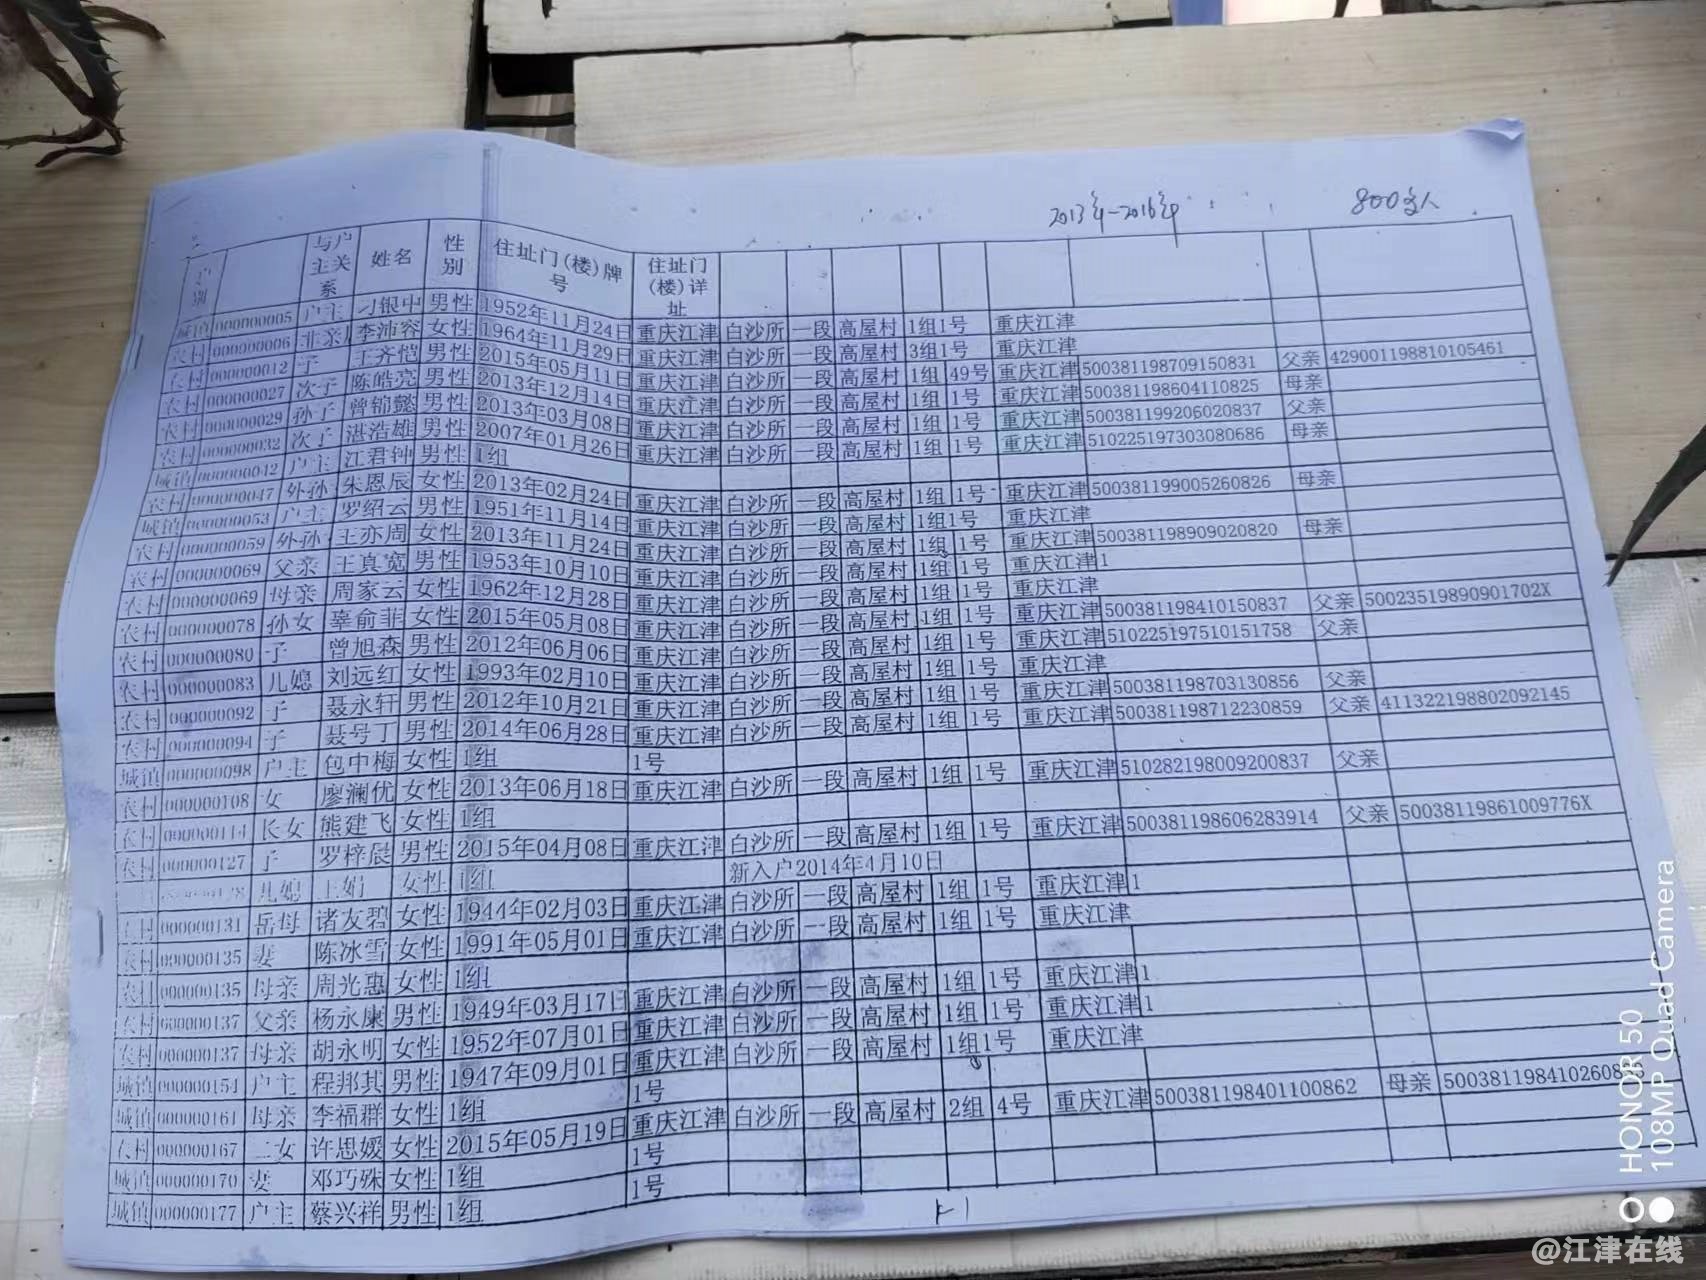 2013年-2016年 800多人
户别 与户主关系 姓名 性别 住址门(楼)牌号 住址门(楼)详址
城镇 000000005 户主 刁银中 男性 1952年11月24日 重庆江津 白沙所 一段 高屋村 1组1号 重庆江津
农村 000000006 非亲 李沛容 女性 1964年11月29日 重庆江津 白沙所 一段 高屋村 3组1号 重庆江津
农村 000000012 子 王齐恺 男性 2015年05月11日 重庆江津 白沙所 一段 高屋村 1组 49号 重庆江津 500381198709150831 父亲 429001198810105461
农村 000000027 次子 陈皓亮 男性 2013年12月14日 重庆江津 白沙所 一段 高屋村 1组 1号 重庆江津 500381198604110825 母亲
农村 000000029 孙子 曾锦懿 男性 2013年03月08日 重庆江津 白沙所 一段 高屋村 1组 1号 重庆江津 500381199206020837 父亲
农村 000000032 次子 湛浩雄 男性 2007年01月26日 重庆江津 白沙所 一段 高屋村 1组 1号 重庆江津 510225197303080686 母亲
城镇 000000042 户主 江君钟 男性 1组
农村 000000047 外孙 朱恩辰 女性 2013年02月24日 重庆江津 白沙所 一段 高屋村 1组 1号 重庆江津 500381199005260826 母亲
城镇 000000053 户主 罗绍云 男性 1951年11月14日 重庆江津 白沙所 一段 高屋村 1组1号 重庆江津
农村 000000059 外孙 王亦周 女性 2013年11月24日 重庆江津 白沙所 一段 高屋村 1组 1号 重庆江津 500381198909020820 母亲
农村 000000069 父亲 王真宽 男性 1953年10月10日 重庆江津 白沙所 一段 高屋村 1组 1号 重庆江津1
农村 000000069 母亲 周家云 女性 1962年12月28日 重庆江津 白沙所 一段 高屋村 1组 1号 重庆江津
农村 000000078 孙女 辜俞菲 女性 2015年05月08日 重庆江津 白沙所 一段 高屋村 1组 1号 重庆江津 500381198410150837 父亲 50023519890901702X
农村 000000080 子 曾旭森 男性 2012年06月06日 重庆江津 白沙所 一段 高屋村 1组 1号 重庆江津 510225197510151758 父亲
农村 000000083 儿媳 刘远红 女性 1993年02月10日 重庆江津 白沙所 一段 高屋村 1组 1号 重庆江津
农村 000000092 子 聂永轩 男性 2012年10月21日 重庆江津 白沙所 一段 高屋村 1组 1号 重庆江津 500381198703130856 父亲
农村 000000094 子 聂号丁 男性 2014年06月28日 重庆江津 白沙所 一段 高屋村 1组 1号 重庆江津 500381198712230859 父亲 411322198802092145
城镇 000000098 户主 包中梅 女性 1组 1号
农村 000000108 女 廖澜优 女性 2013年06月18日 重庆江津 白沙所 一段 高屋村 1组 1号 重庆江津 510282198009200837 父亲
农村 000000114 长女 熊建飞 女性 1组
农村 000000127 子 罗梓晨 男性 2015年04月08日 重庆江津 白沙所 一段 高屋村 1组 1号 重庆江津 500381198606283914 父亲 50038119861009776X
儿媳 王娟 女性 1组 新入户2014年4月10日
农村 000000131 岳母 诸友碧 女性 1944年02月03日 重庆江津 白沙所 一段 高屋村 1组 1号 重庆江津1
农村 000000135 妻 陈冰雪 女性 1991年05月01日 重庆江津 白沙所 一段 高屋村 1组 1号 重庆江津
农村 000000135 母亲 周光惠 女性 1组
农村 000000137 父亲 杨永康 男性 1949年03月17日 重庆江津 白沙所 一段 高屋村 1组 1号 重庆江津1
农村 000000137 母亲 胡永明 女性 1952年07月01日 重庆江津 白沙所 一段 高屋村 1组 1号 重庆江津1
城镇 000000154 户主 程邦其 男性 1947年09月01日 重庆江津 白沙所 一段 高屋村 1组1号 重庆江津
城镇 000000161 母亲 李福群 女性 1组 1号
农村 000000167 二女 许思媛 女性 2015年05月19日 重庆江津 白沙所 一段 高屋村 2组 4号 重庆江津 500381198401100862 母亲
城镇 000000170 妻 邓巧殊 女性 1组 1号
城镇 000000177 户主 蔡兴祥 男性 1组 1号
HONOR 50
108MP Quad Camera
@江津在线